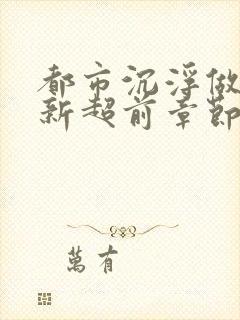 都市沉浮做
新超前章節
萬有